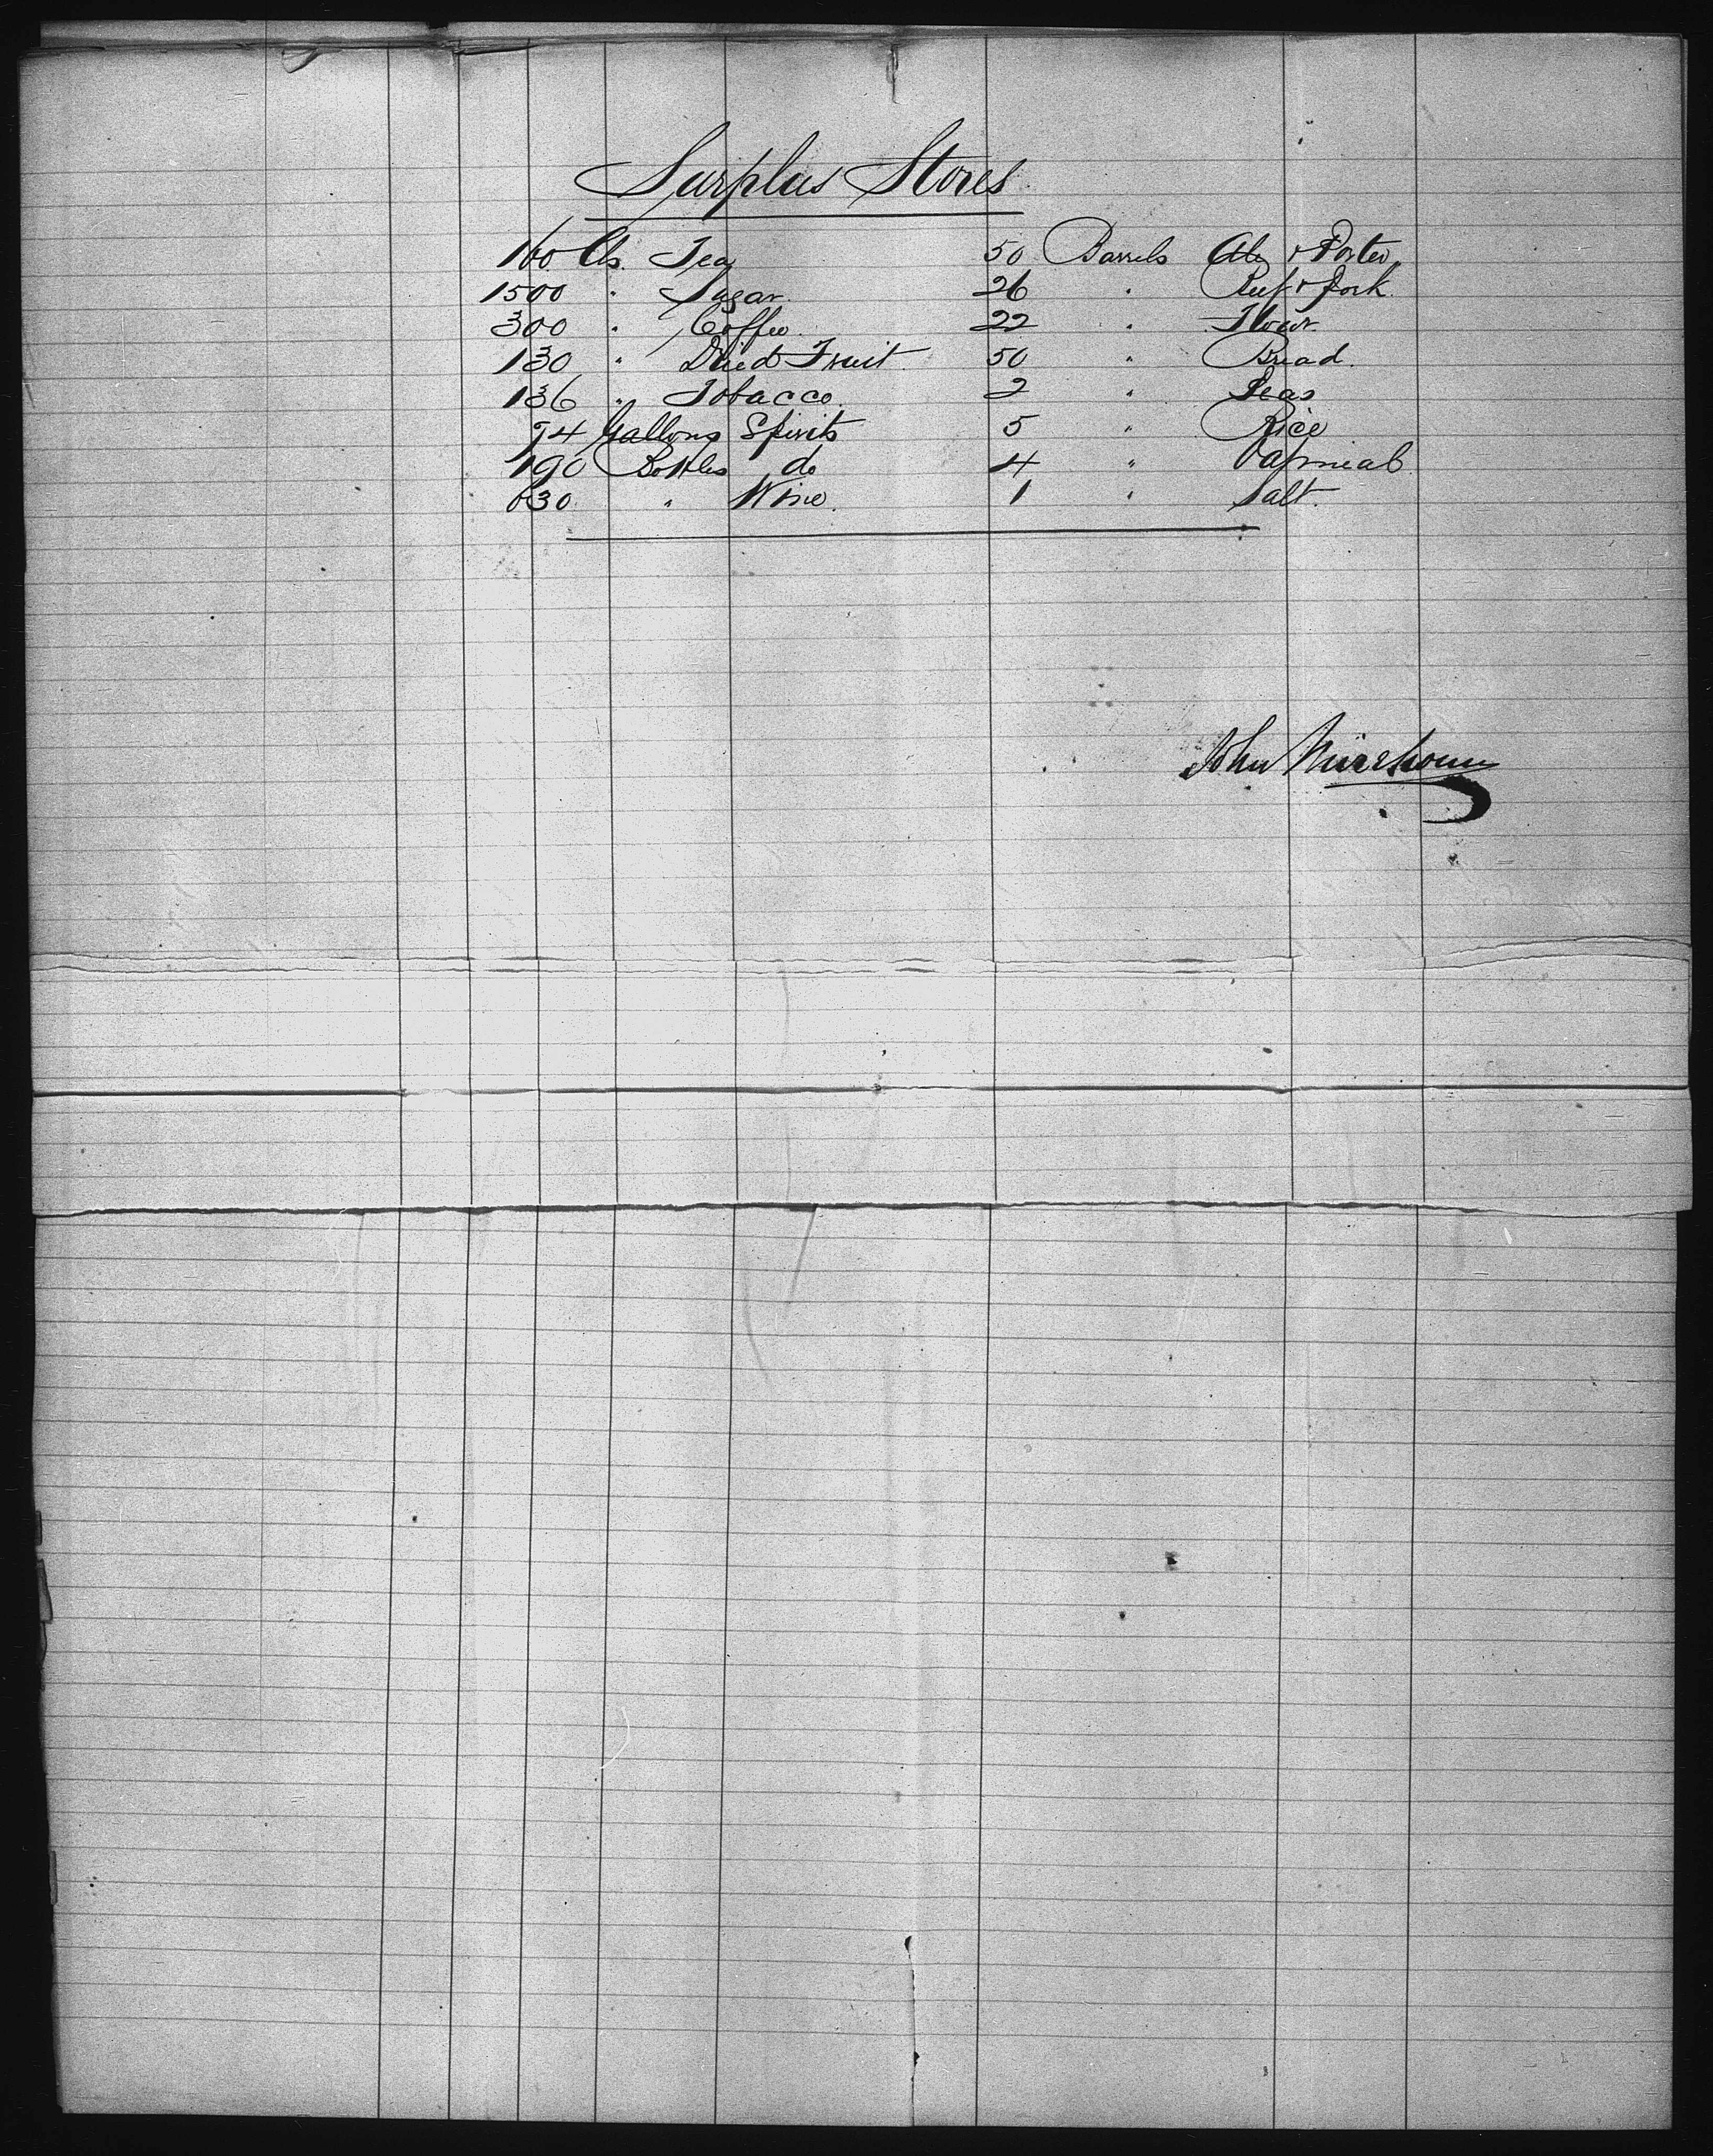 Surplus Stores
160 lbs. Tea 50 Barrels Ale & Porter
1500 " Sugar. 26 " Beef & Pork.
300 " Coffee. 22 " Flour.
130 " Dried Fruit. 50 " Bread.
136 " Tobacco. 2 " Peas
74 Gallons Spirits 5 " Rice
190 Bottles do 4 " Oatmeal.
630 " Wine. 1 " Salt.
John